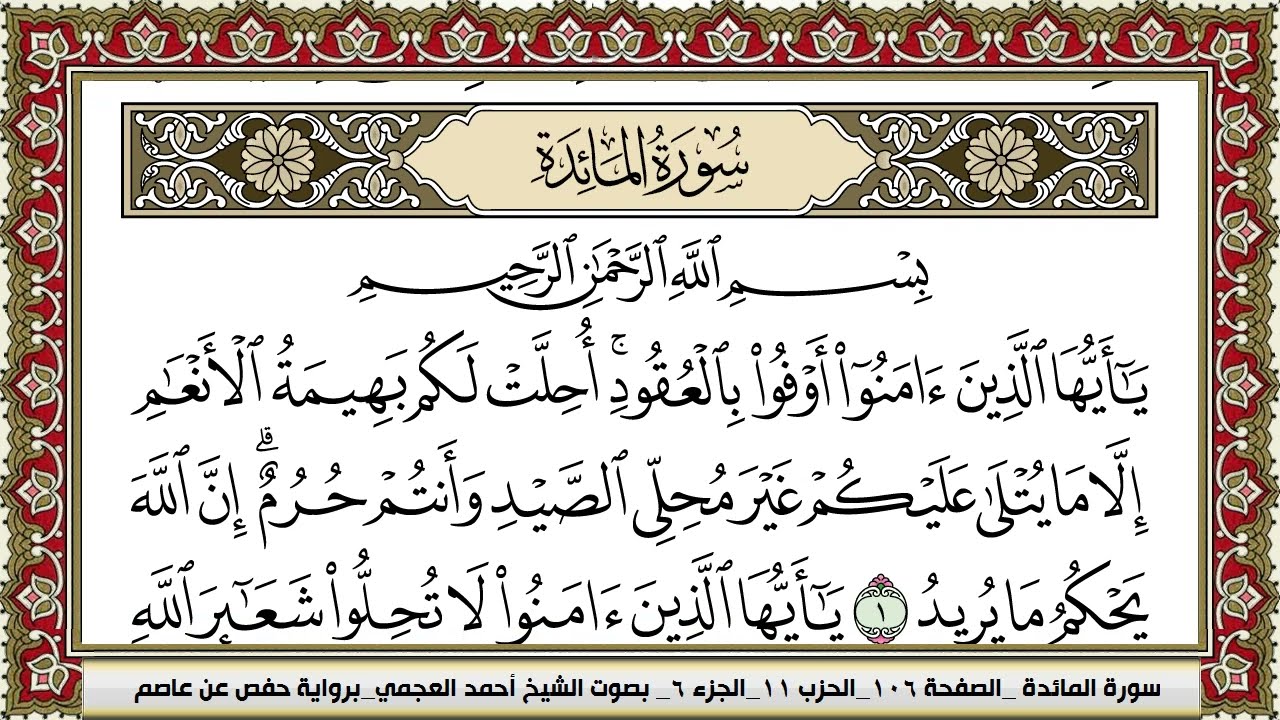 سُورَةُ المَائِدَةِ
بِسْمِ ٱللَّهِ ٱلرَّحْمَٰنِ ٱلرَّحِيمِ
يَٰٓأَيُّهَا ٱلَّذِينَ ءَامَنُوٓا۟ أَوْفُوا۟ بِٱلْعُقُودِ ۚ أُحِلَّتْ لَكُم بَهِيمَةُ ٱلْأَنْعَٰمِ
إِلَّا مَا يُتْلَىٰ عَلَيْكُمْ غَيْرَ مُحِلِّى ٱلصَّيْدِ وَأَنتُمْ حُرُمٌ ۗ إِنَّ ٱللَّهَ
يَحْكُمُ مَا يُرِيدُ ١ يَٰٓأَيُّهَا ٱلَّذِينَ ءَامَنُوا۟ لَا تُحِلُّوا۟ شَعَٰٓئِرَ ٱللَّهِ
سورة المائدة _الصفحة ١٠٦_الحزب ١١_الجزء ٦_ بصوت الشيخ أحمد العجمي_برواية حفص عن عاصم